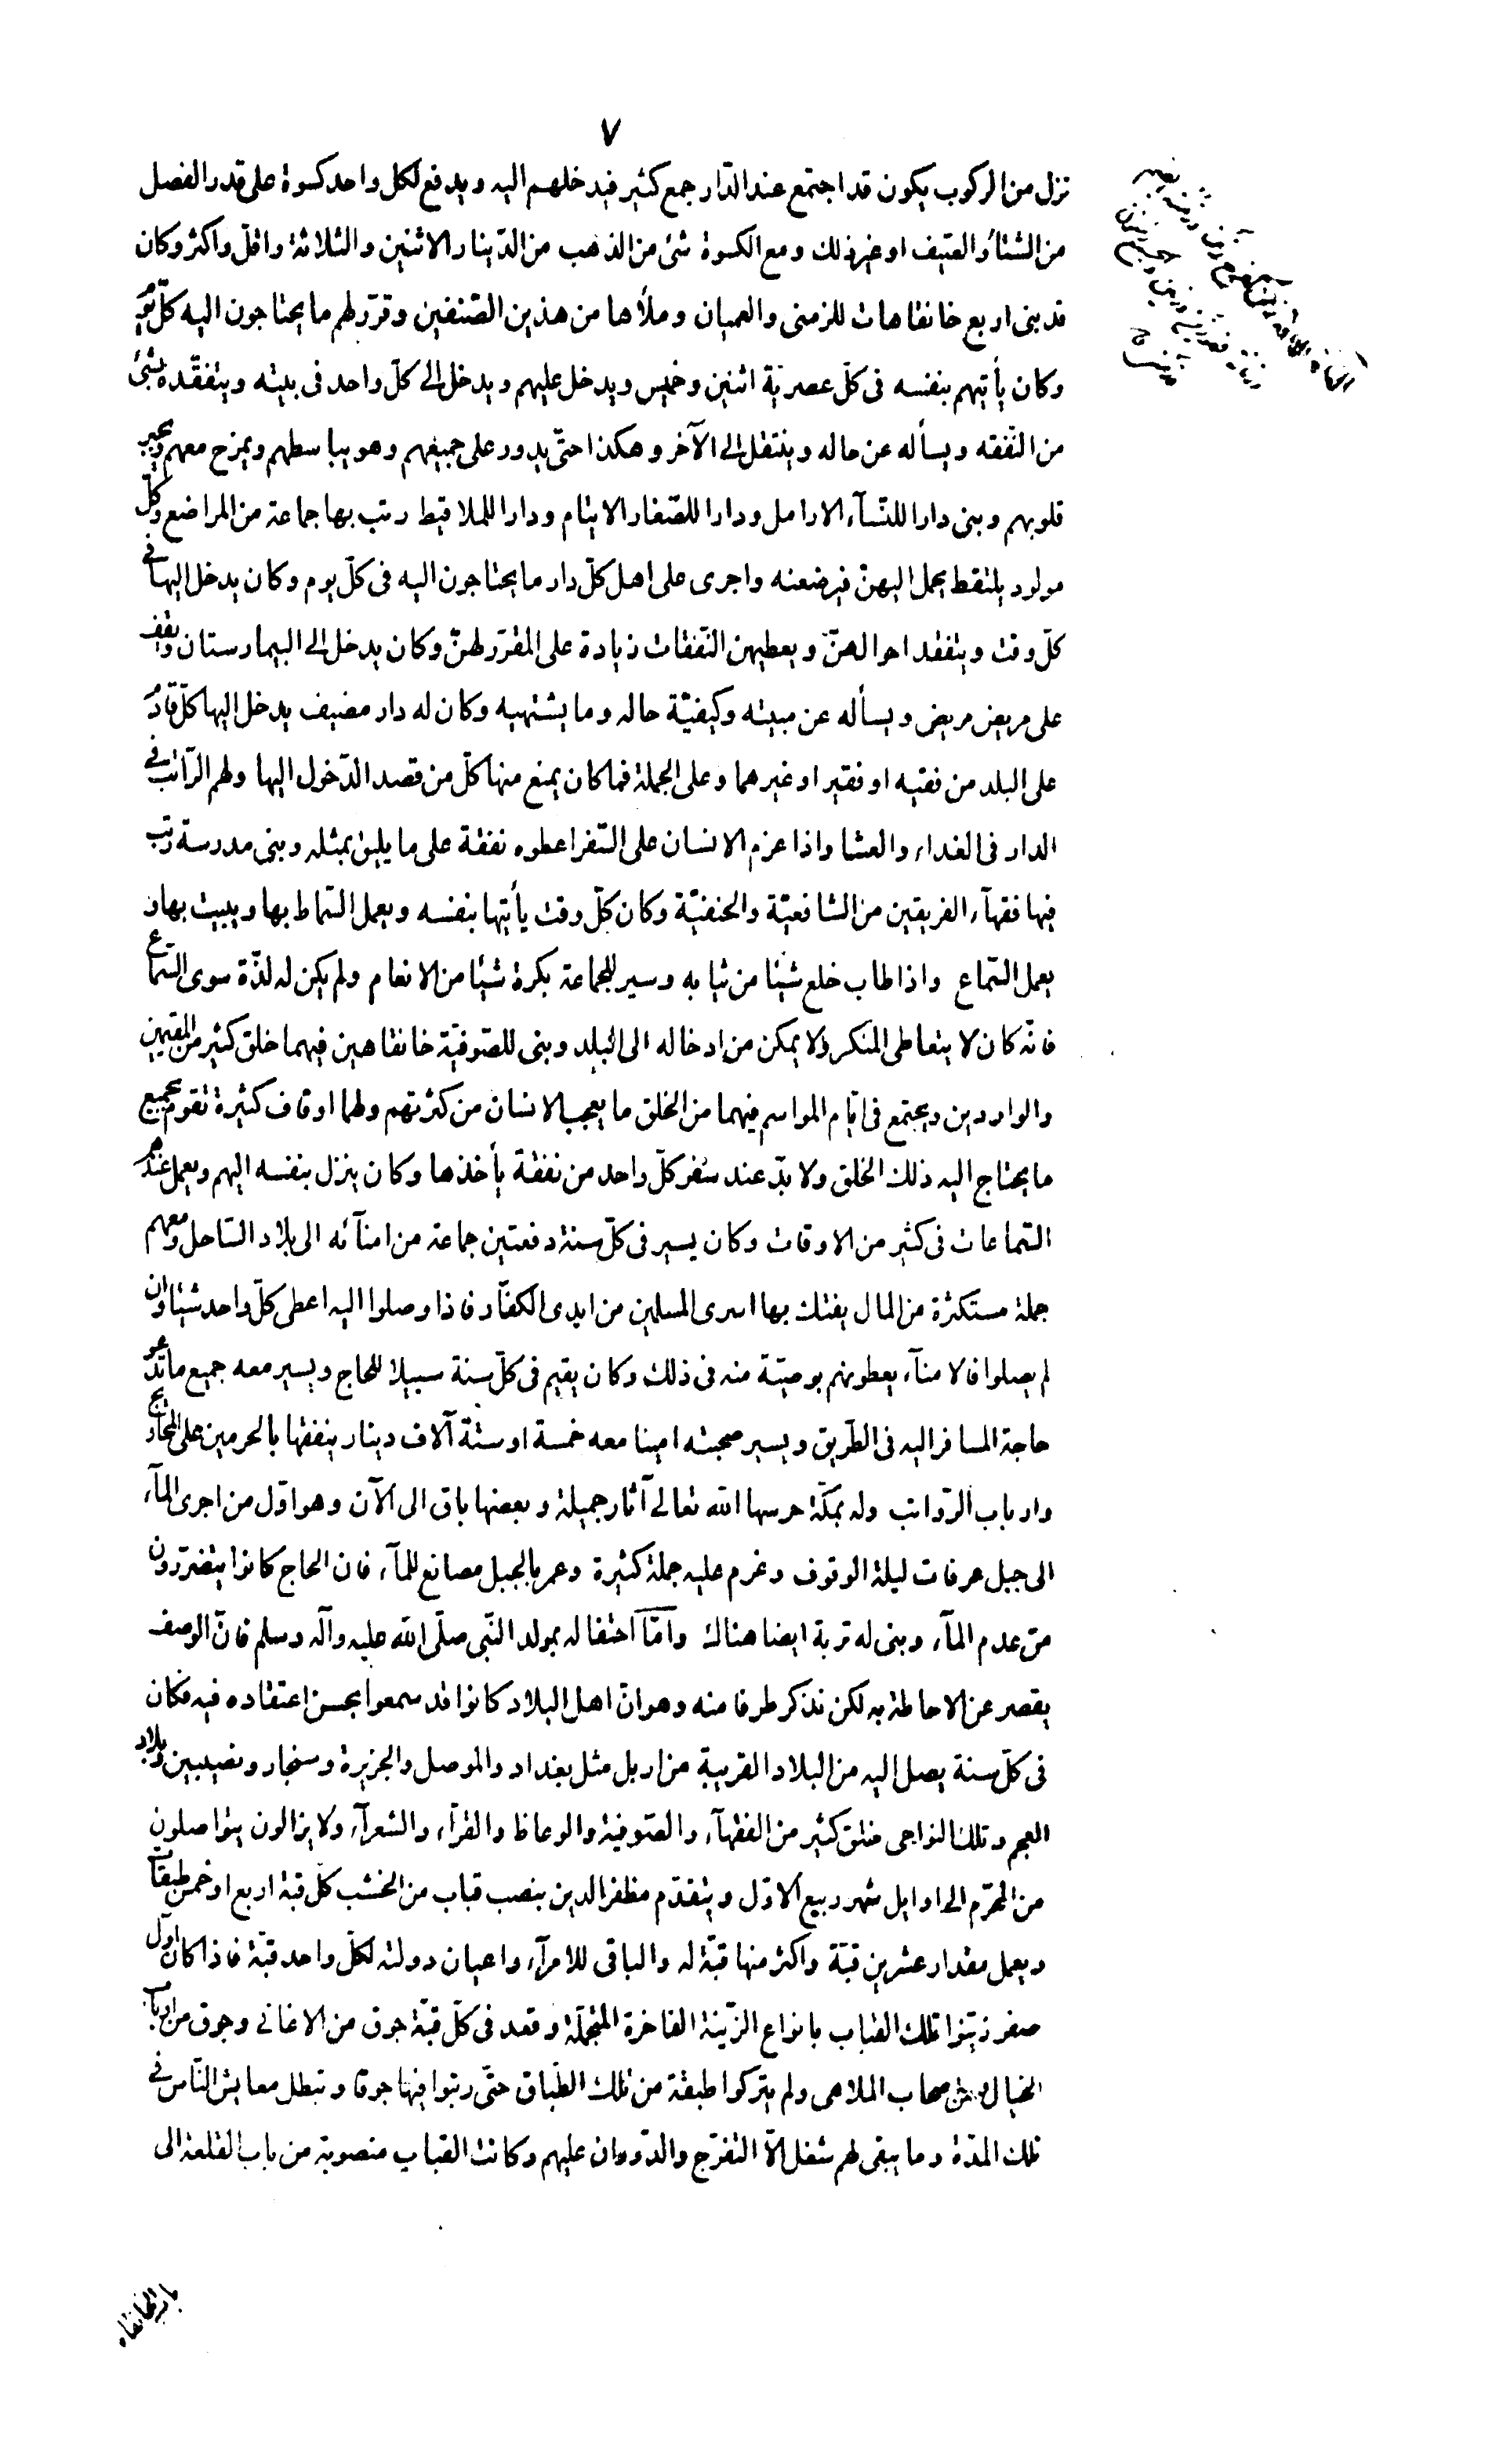 ٧
نزل من الركوب يكون قد اجتمع عند الدّار جمع كثير فيدخلهم اليه ويدفع لكل واحد كسوة على قدر الفصل
من الشتاء والصيف او غير ذلك ومع الكسوة شئ من الذهب من الدّينار والاثنين والثلاثة واقلّ واكثر وكان
قد بنى اربع خانقاهات للزمنى والعميان وملأها من هذين الصّنفين وقرّر لهم ما يحتاجون اليه كلّ يوم
وكان يأتيهم بنفسه فى كلّ عصريّة اثنين وخميس ويدخل عليهم ويدخل الى كلّ واحد فى بيته ويتفقّده بشئ
من النّفقه ويسأله عن حاله وينتقل الى الآخر وهكذا حتّى يدور على جميعهم وهو يباسطهم ويمزح معهم ويجبر
قلوبهم وبنى دارا للنّسآء الارامل ودارا للصّغار الايتام ودارا للملاقيط رتب بها جماعة من المراضع وكلّ
مولود يلتقط يحمل اليهنّ فيرضعنه واجرى على اهل كلّ دار ما يحتاجون اليه فى كلّ يوم وكان يدخل اليها فى
كلّ وقت ويتفقد احوالهنّ ويعطيهن النّفقات زيادة على المقرّر لهنّ وكان يدخل الى البيمارستان ويقف
على مريض مريض ويسأله عن مبيته وكيفيّة حاله وما يشتهيه وكان له دار مضيف يدخل اليها كلّ قادم
على البلد من فقيه او فقير او غيرهما وعلى الجملة فما كان يمنع منها كلّ من قصد الدّخول اليها ولهم الرّاتب فى
الدار فى الغداء والعشا واذا عزم الانسان على السّفر اعطوه نفقة على ما يليق بمثله وبنى مدرسة رتب
فيها فقهآء الفريقين من الشافعيّة والحنفيّة وكان كلّ وقت يأتيها بنفسه ويعمل السّماط بها ويبيت بها و
يعمل السّماع واذا طاب خلع شيئا من ثيابه وسير للجماعة بكرة شيئا من الانعام ولم يكن له لذّة سوى السّماع
فانّه كان لا يتعاطى المنكر ولا يمكن من ادخاله الى البلد وبنى للصّوفيّة خانقاهين فيهما خلق كثير من المقيمين
والواردين ويجتمع فى ايّام المواسم فيهما من الخلق ما يعجب الانسان من كثرتهم ولهما اوقاف كثيرة تقوم بجميع
ما يحتاج اليه ذلك الخلق ولا بدّ عند سفر كلّ واحد من نفقة يأخذها وكان ينزل بنفسه اليهم ويعمل عندهم
السّماعات فى كثير من الاوقات وكان يسير فى كلّ سنة دفعتين جماعة من امنآئه الى بلاد السّاحل ومعهم
جملة مستكثرة من المال يفتك بها اسرى المسلمين من ايدى الكفّار فاذا وصلوا اليه اعطى كلّ واحد شيئا وان
لم يصلوا فالامنآء يعطونهم بوصيّة منه فى ذلك وكان يقيم فى كلّ سنة سبيلا للحاج ويسير معه جميع ما تدعو
حاجة المسافر اليه فى الطّريق ويسير صحبته امينا معه خمسة او ستّة آلاف دينار ينفقها بالحرمين على المحاويج
وارباب الرّواتب وله بمكّة حرسها الله تعالى آثار جميلة وبعضها باق الى الآن وهو اوّل من اجرى المآء
الى جبل عرفات ليلة الوقوف وغرم عليه جملة كثيرة وعمر بالجبل مصانع للمآء فان الحاج كانوا يتضرّرون
من عدم المآء وبنى له تربة ايضا هناك وامّا احتفاله بمولد النّبى صلّى الله عليه وآله وسلم فانّ الوصف
يقصر عن الاحاطة به لكن نذكر طرفا منه وهو انّ اهل البلاد كانوا قد سمعوا بحسن اعتقاده فيه فكان
فى كلّ سنة يصل اليه من البلاد القريبة من اربل مثل بغداد والموصل والجزيرة وسنجار ونصيبين وبلاد
العجم وتلك النواحى خلق كثير من الفقهآء والصّوفية والوعاظ والقرّاء والشعرآء ولا يزالون يتواصلون
من المحرّم الى اوايل شهر ربيع الاوّل ويتقدّم مظفر الدين بنصب قباب من الخشب كلّ قبة اربع او خمس طبقات
ويعمل مقدار عشرين قبّة واكثر منها قبّة له والباقى للامرآء واعيان دولته لكلّ واحد قبّة فاذا كان اوّل
صفر زيّنوا تلك القباب بانواع الزّينة الفاخرة المتجمّلة وقعد فى كلّ قبّة جوق من الاغانى وجوق من ارباب
الخيال ومن اصحاب الملاهى ولم يتركوا طبقة من تلك الطّباق حتّى رتبوا فيها جوقا وتبطل معايش النّاس فى
تلك المدّة وما يبقى لهم شغل الّا التفرّج والدّوران عليهم وكانت القباب منصوبة من باب القلعة الى
باب الخانقاه